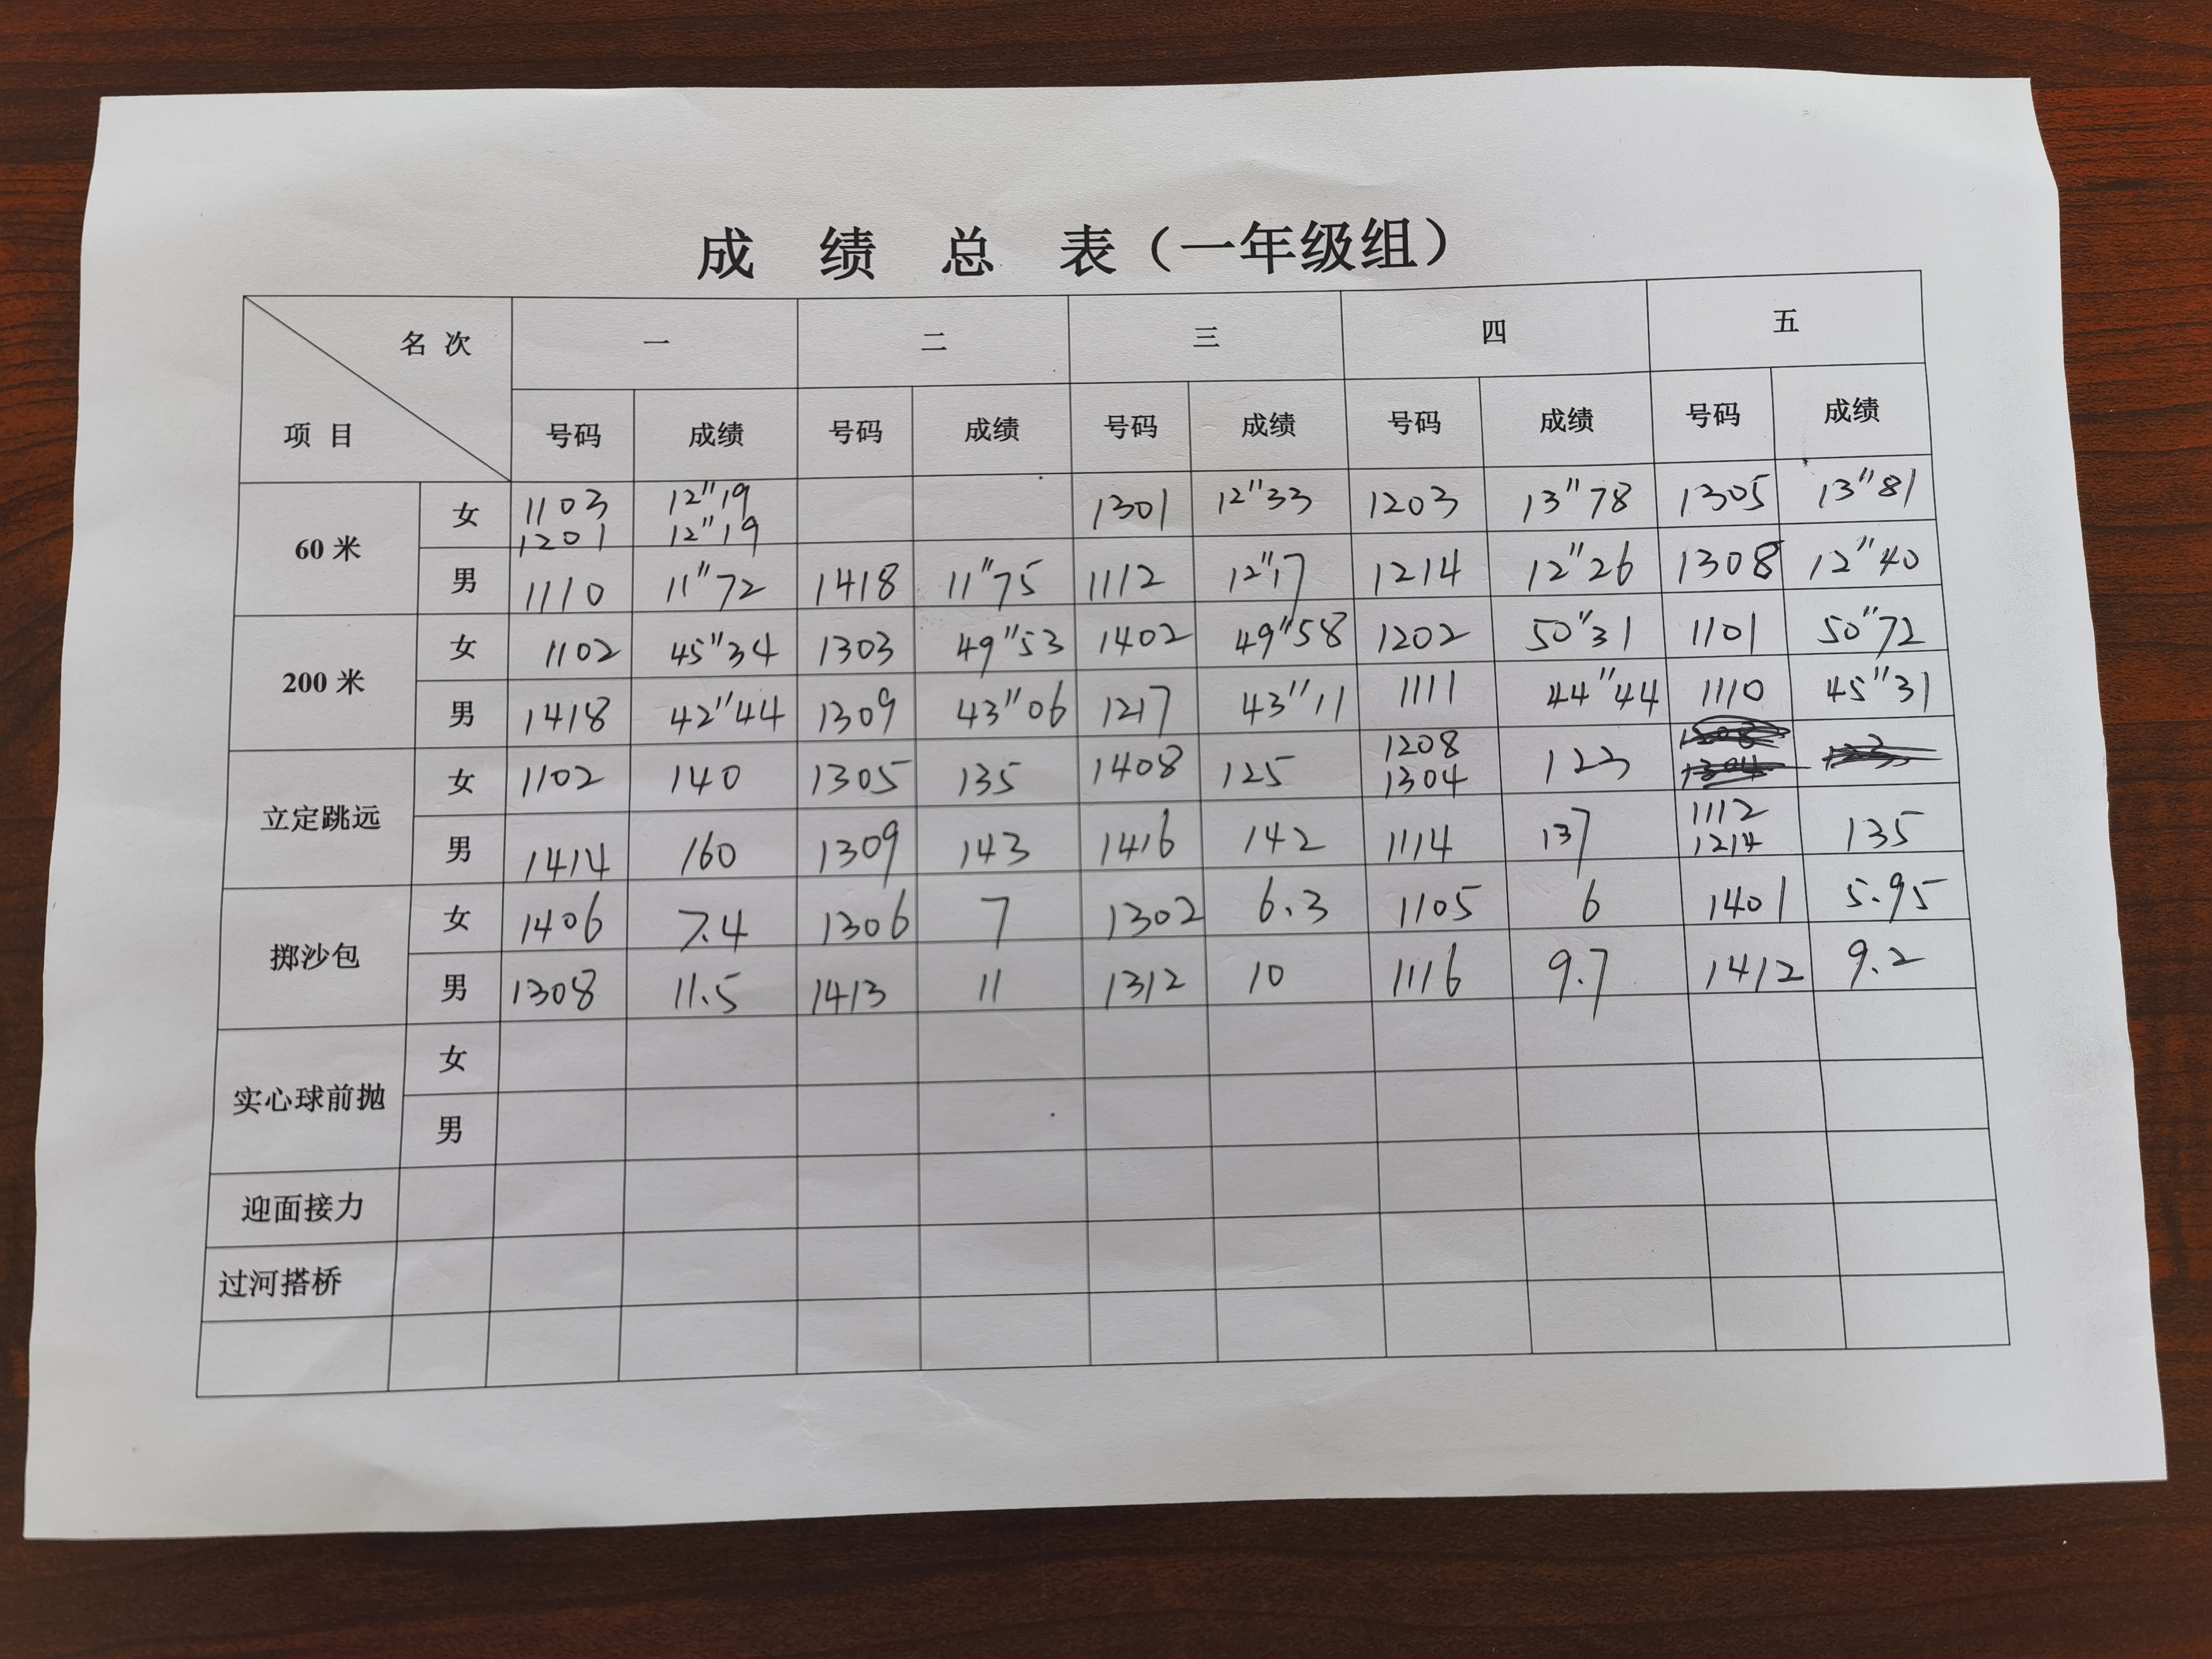 成 绩 总 表（一年级组）
名 次 一 二 三 四 五
项 目 号码 成绩 号码 成绩 号码 成绩 号码 成绩 号码 成绩
60 米 女 1103 12"19 1301 12"33 1203 13"78 1305 13"81
1201 12"19
男 1110 11"72 1418 11"75 1112 12"17 1214 12"26 1308 12"40
200 米 女 1102 45"34 1303 49"53 1402 49"58 1202 50"31 1101 50"72
男 1418 42"44 1309 43"06 1217 43"11 1111 44"44 1110 45"31
立定跳远 女 1102 140 1305 135 1408 125 1208 123
1304
男 1414 160 1309 143 1416 142 1114 137 1112 135
1214
掷沙包 女 1406 7.4 1306 7 1302 6.3 1105 6 1401 5.95
男 1308 11.5 1413 11 1312 10 1116 9.7 1412 9.2
实心球前抛 女
男
迎面接力
过河搭桥